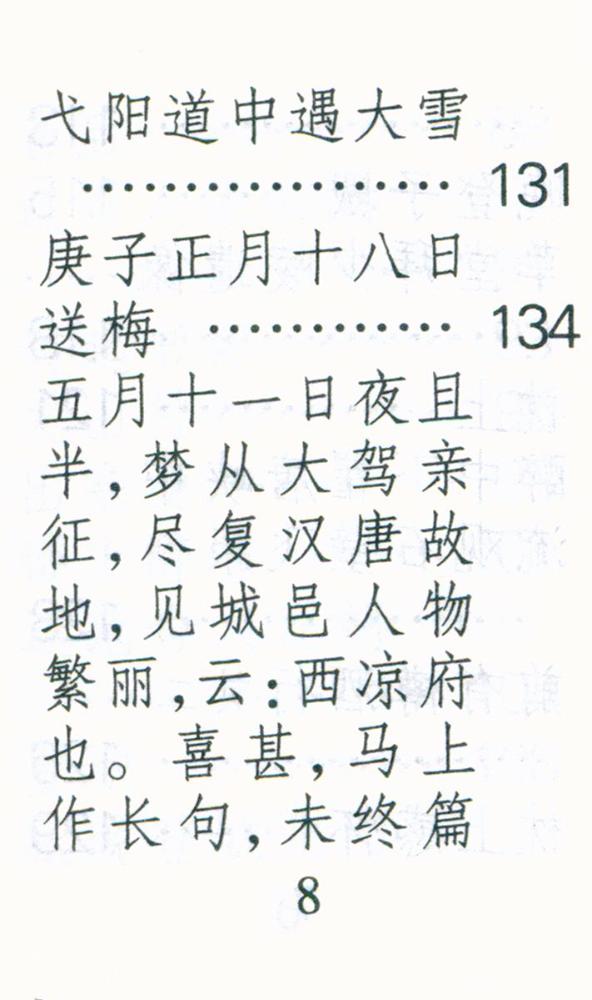 弋阳道中遇大雪
……………………131
庚子正月十八日
送梅 ……………134
五月十一日夜且
半,梦从大驾亲
征,尽复汉唐故
地,见城邑人物
繁丽,云:西凉府
也。喜甚,马上
作长句,未终篇
8